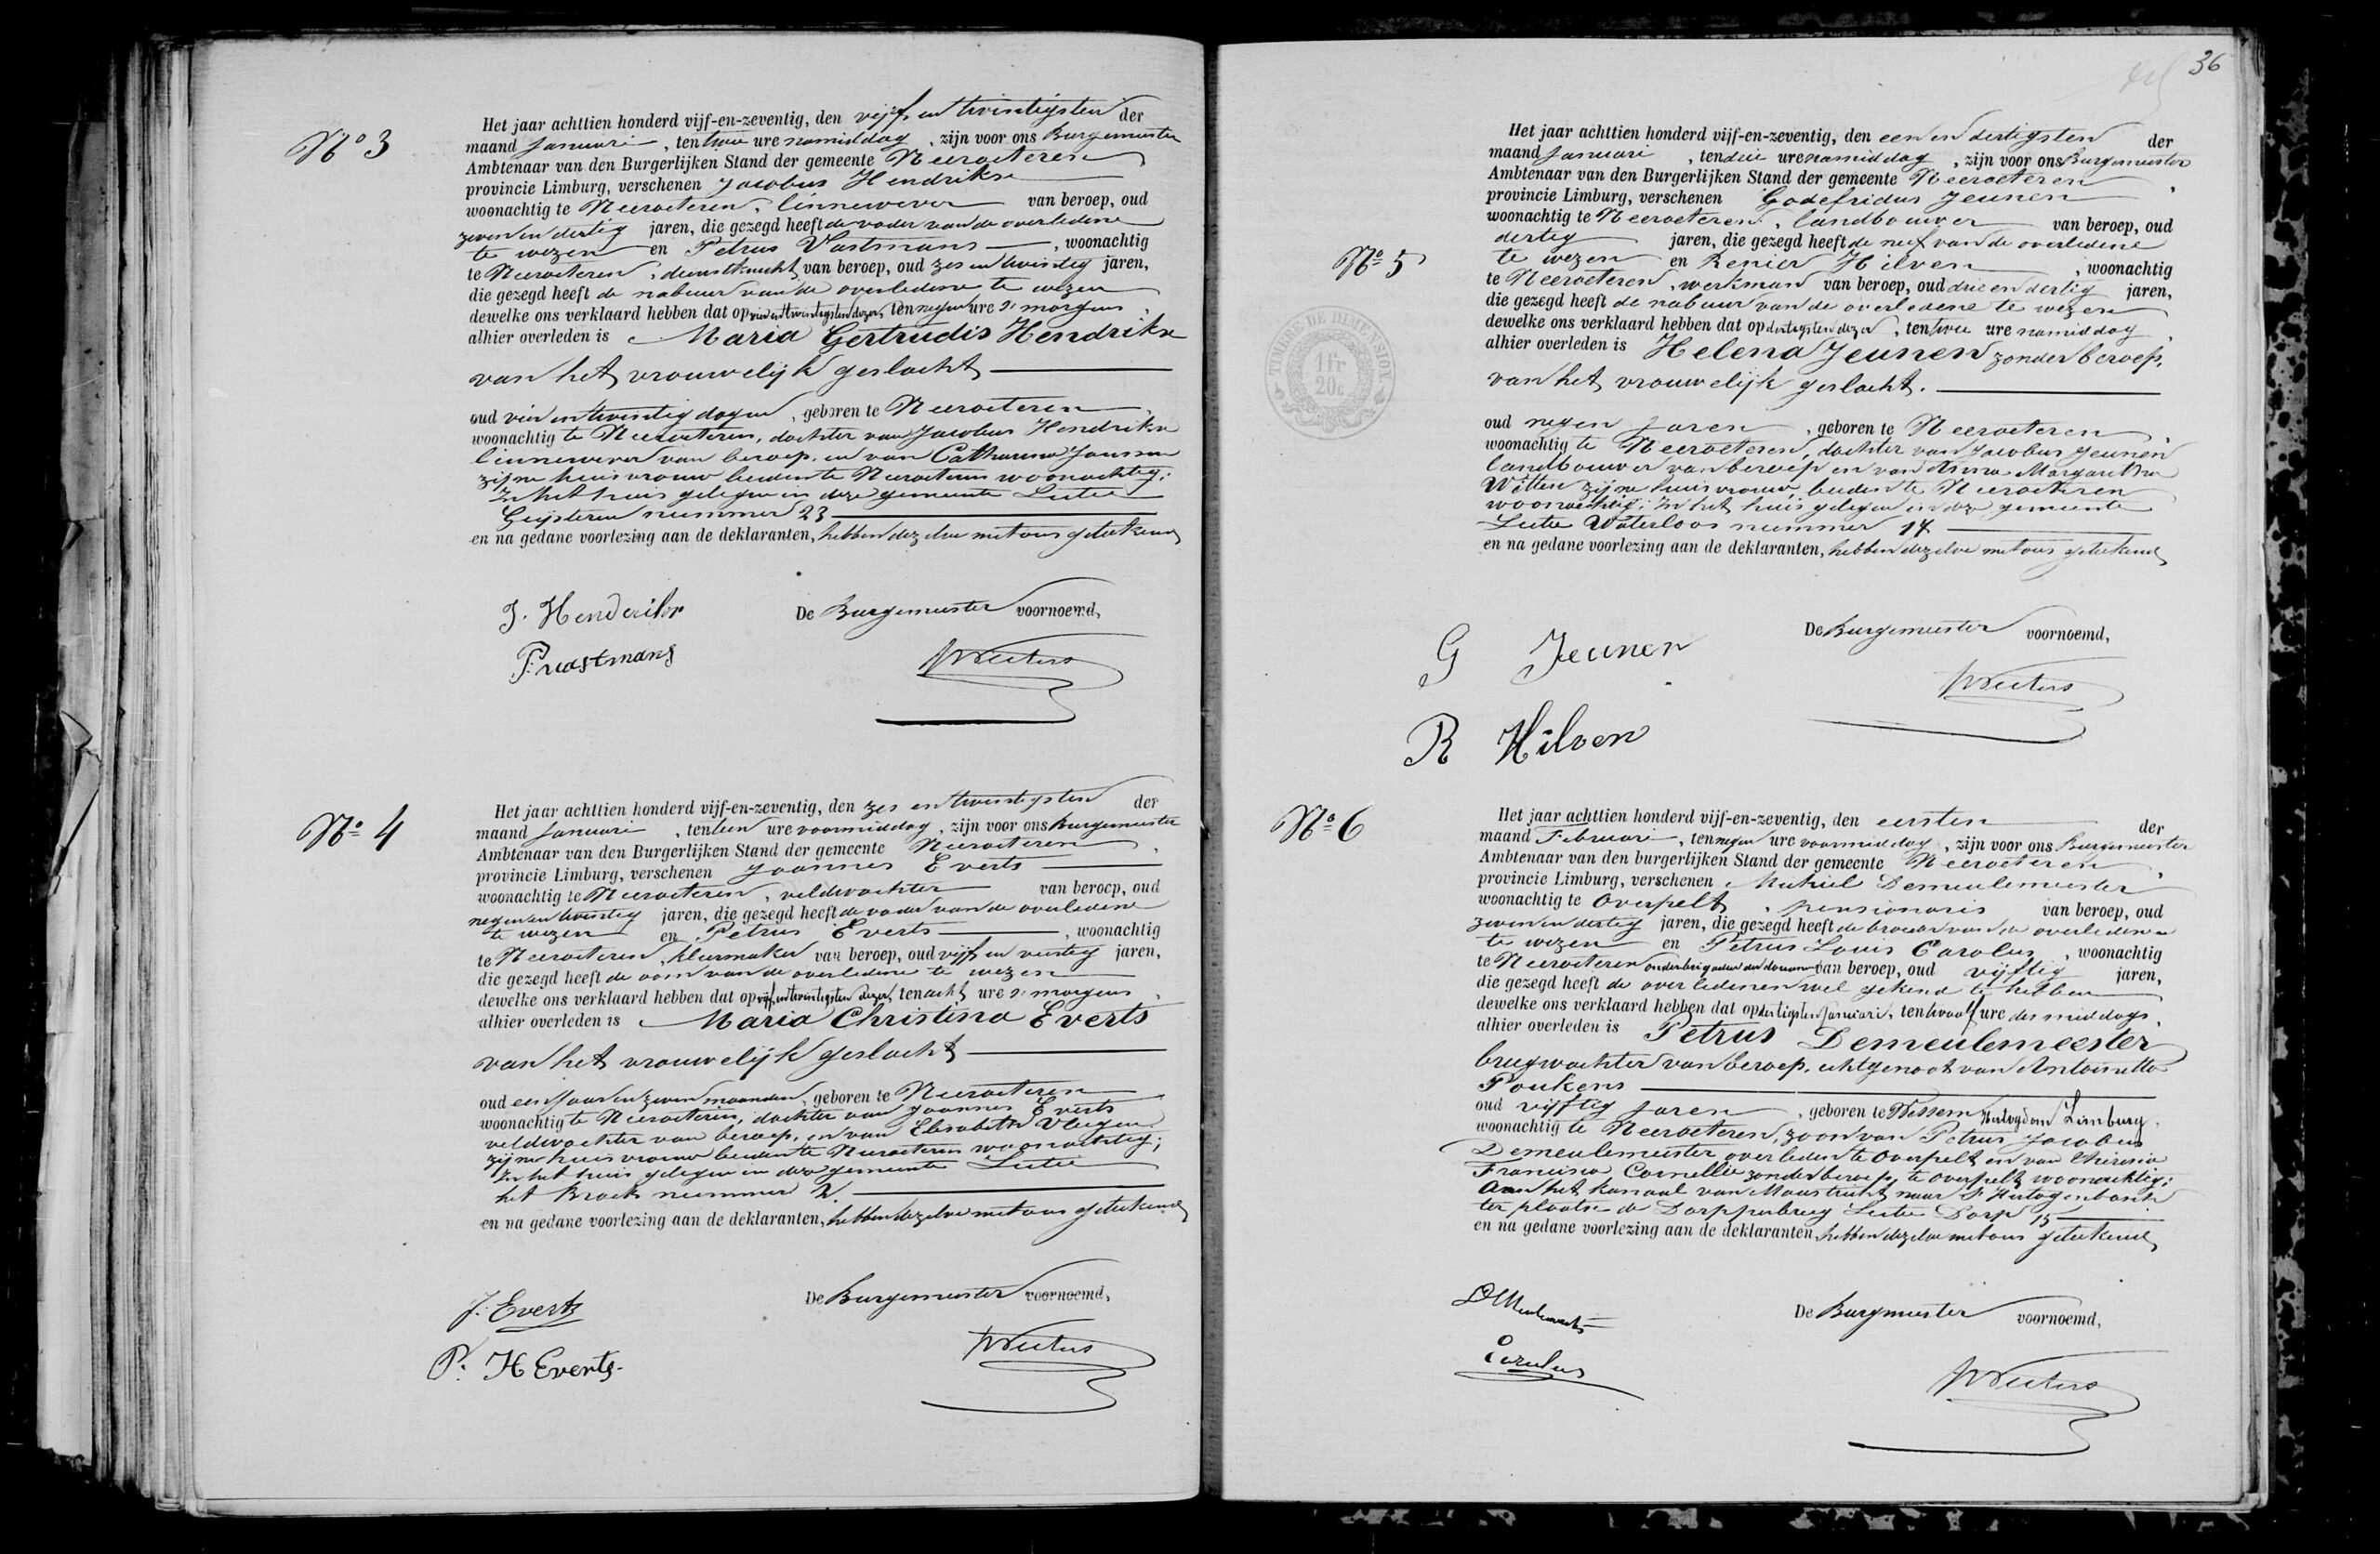 No 3
Het jaar achttien honderd vijf-en-zeventig, den vijf en twintigsten der
maand Januari, ten twee ure namiddag, zijn voor ons Burgemeester
Ambtenaar van den Burgerlijken Stand der gemeente Neeroeteren
provincie Limburg, verschenen Jacobus Hendrikx
woonachtig te Neeroeteren, linnewever van beroep, oud
zeven en dertig jaren, die gezegd heeft de vader van de overledene
te wezen en Petrus Vastmans, woonachtig
te Neeroeteren, dienstknecht van beroep, oud zes en twintig jaren,
die gezegd heeft de nabuur van de overledene te wezen
dewelke ons verklaard hebben dat op vier en twintigsten dezer, ten negen ure 's morgens,
alhier overleden is Maria Gertrudis Hendrikx
van het vrouwelijk geslacht
oud vier en twintig dagen, geboren te Neeroeteren,
woonachtig te Neeroeteren, dochter van Jacobus Hendrikx
linnewever van beroep, en van Catharina Janssen
zijne huisvrouw beiden te Neeroeteren woonachtig;
In het huis gelegen in deze gemeente Lutie
Geijsteren nummer 23
en na gedane voorlezing aan de deklaranten, hebben dezelve met ons geteekend
J. Hendrikx
P. vastmans
De Burgemeester voornoemd,
No 4
Het jaar achttien honderd vijf-en-zeventig, den zes en twintigsten der
maand Januari, ten tien ure voormiddag, zijn voor ons Burgemeester
Ambtenaar van den Burgerlijken Stand der gemeente Neeroeteren,
provincie Limburg, verschenen Joannes Everts
woonachtig te Neeroeteren, veldwachter van beroep, oud
negen en twintig jaren, die gezegd heeft de vader van de overledene
te wezen en Petrus Everts, woonachtig
te Neeroeteren, kleermaker van beroep, oud vijf en veertig jaren,
die gezegd heeft de oom van de overledene te wezen
dewelke ons verklaard hebben dat op vijf en twintigsten dezer, ten acht ure 's morgens,
alhier overleden is Maria Christina Everts
van het vrouwelijk geslacht
oud een jaar en zeven maanden, geboren te Neeroeteren
woonachtig te Neeroeteren, dochter van Joannes Everts
veldwachter van beroep, en van Elisabeth Vliegen
zijne huisvrouw beiden te Neeroeteren woonachtig;
In het huis gelegen in deze gemeente Lutie
het Broek nummer 2.
en na gedane voorlezing aan de deklaranten, hebben dezelve met ons geteekend
J. Everts
P. H Everts.
De Burgemeester voornoemd,
36
No 5
TIMBRE DE DIMENSION
1fr
20c
Het jaar achttien honderd vijf-en-zeventig, den een en dertigsten der
maand Januari, ten drie ure namiddag, zijn voor ons Burgemeester
Ambtenaar van den Burgerlijken Stand der gemeente Neeroeteren,
provincie Limburg, verschenen Godefridus Jeunen
woonachtig te Neeroeteren, landbouwer van beroep, oud
dertig jaren, die gezegd heeft de neef van de overledene
te wezen en Renier Hilven, woonachtig
te Neeroeteren, werkman van beroep, oud drie en dertig jaren,
die gezegd heeft de nabuur van de overledene te wezen
dewelke ons verklaard hebben dat op dertigsten dezer, ten twee ure namiddag,
alhier overleden is Helena Jeunen zonder beroep,
van het vrouwelijk geslacht.
oud negen jaren, geboren te Neeroeteren,
woonachtig te Neeroeteren, dochter van Jacobus Jeunen
landbouwer van beroep en van Anna Margaretha
Witten zijne huisvrouw, beiden te Neeroeteren
woonachtig; In het huis gelegen in deze gemeente
Lutie Waterloos nummer 17
en na gedane voorlezing aan de deklaranten, hebben dezelve met ons geteekend
G Jeunen
R Hilven
De Burgemeester voornoemd,
No 6
Het jaar achttien honderd vijf-en-zeventig, den eersten der
maand Februari, ten negen ure voormiddag, zijn voor ons Burgemeester
Ambtenaar van den burgerlijken Stand der gemeente Neeroeteren,
provincie Limburg, verschenen Michiel Demeulemeester
woonachtig te Overpelt, pensionaris van beroep, oud
zeven en dertig jaren, die gezegd heeft de broeder van de overledenen
te wezen en Petrus Louis Carolus, woonachtig
te Neeroeteren onderbrigadier der douanen van beroep, oud vijftig jaren,
die gezegd heeft de overledenen wel gekend te hebben
dewelke ons verklaard hebben dat op dertigsten Januari, ten twaalf ure des middags,
alhier overleden is Petrus Demeulemeester
brugwachter van beroep, echtgenoot van Antoinetta
Poukens
oud vijftig jaren, geboren te Wessem Hertogdom Limburg,
woonachtig te Neeroeteren, zoon van Petrus Jacobus
Demeulemeester overleden te Overpelt en van Theresia
Francisca Cornellie zonder beroep, te Overpelt woonachtig;
Aan het kanaal van Maastricht naar S' Hertogenbosch
ter plaatse de Dorpperbrug Lutie Dorp 15
en na gedane voorlezing aan de deklaranten, hebben dezelve met ons geteekend
Carolus
De Burgmeester voornoemd,